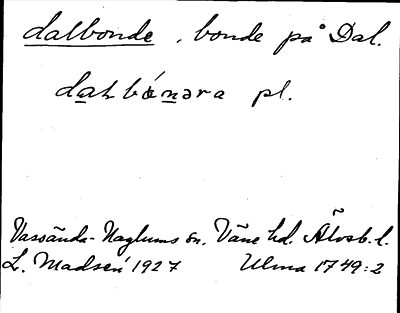 dalbonde, bonde på Dal.
dalbǿnəra pl.
Vassända-Naglums sn. Väne hd. Älvsb. l.
L. Madsén 1927 Ulma 1749:2